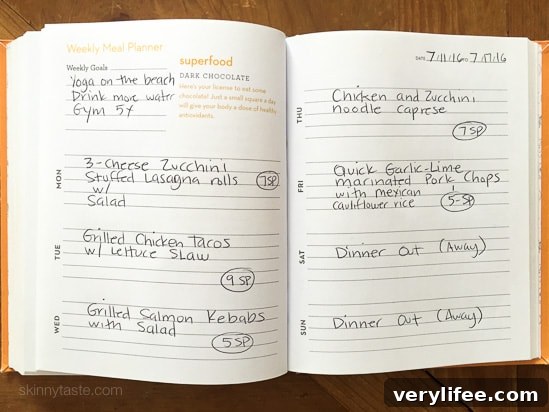 Weekly Meal Planner
Weekly Goals
Yoga on the beach
Drink more water
Gym 5x
superfood
DARK CHOCOLATE
Here's your license to eat some
chocolate! Just a small square a day
will give your body a dose of healthy
antioxidants.
MON
3-Cheese Zucchini
Stuffed Lasagna rolls
w/
Salad
7SP
TUE
Grilled Chicken Tacos
w/ Lettuce Slaw
9 SP
WED
Grilled Salmon Kebabs
with Salad
5 SP
DATE 7/11/16 TO 7/17/16
THU
Chicken and Zucchini
noodle caprese
7 SP
FRI
Quick Garlic-Lime
marinated Pork Chops
with mexican
cauliflower rice
5-SP
SAT
Dinner Out (Away)
SUN
Dinner Out (Away)
skinnytaste.com
verylifee.com